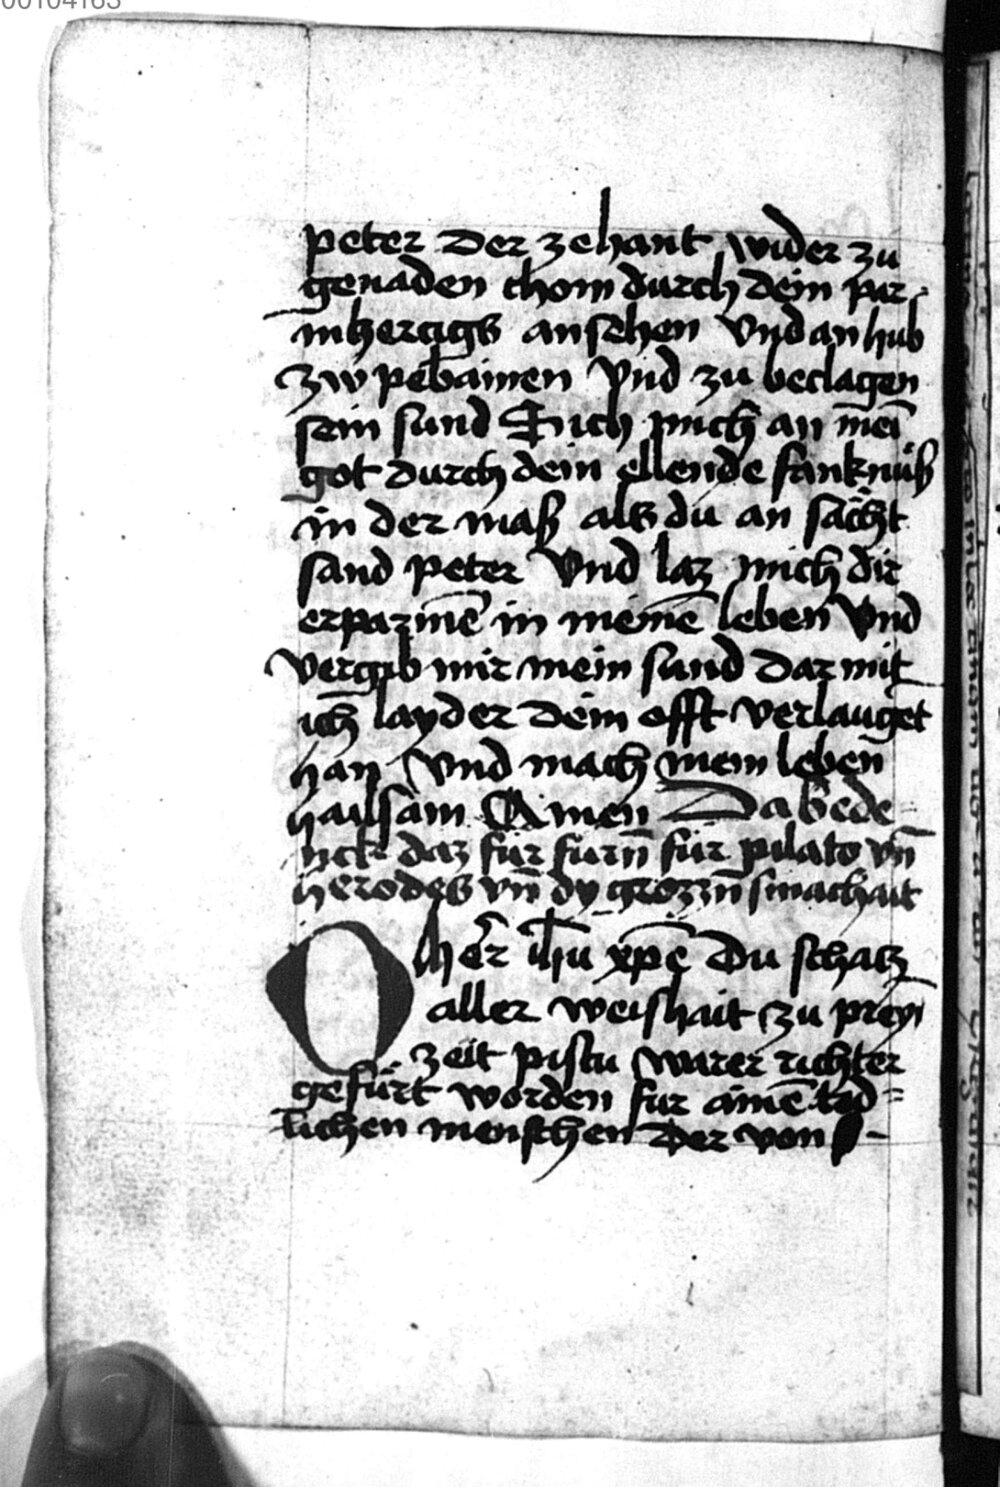 00104163
peter der zehant wider zu
genaden chom durch dein par⸗
mherczigs ansehen Vnd an hub
zw pebainen Vnd zu beclagen
sein sund Sich mich an mei͂
got durch dein ellende fanknuß
in der maß als du an sächt
sand peter Vnd laz mich dir
erparme͂ in meine͂ leben Vnd
vergib mir mein sund dar mit
ich layder dein offt verlauget
han Vnd mach mein leben
hailsam Amen Da bede⸗
nck daz für furn̄ für pilato vn̄
herodes vn̄ dy grozzn̄ smachait
O her ihu xpe͂ du schatz
aller weishait zu prey͂
zeit pistu warer richter
gefürt worden fur aine͂ tod⸗
lichen menschen der von